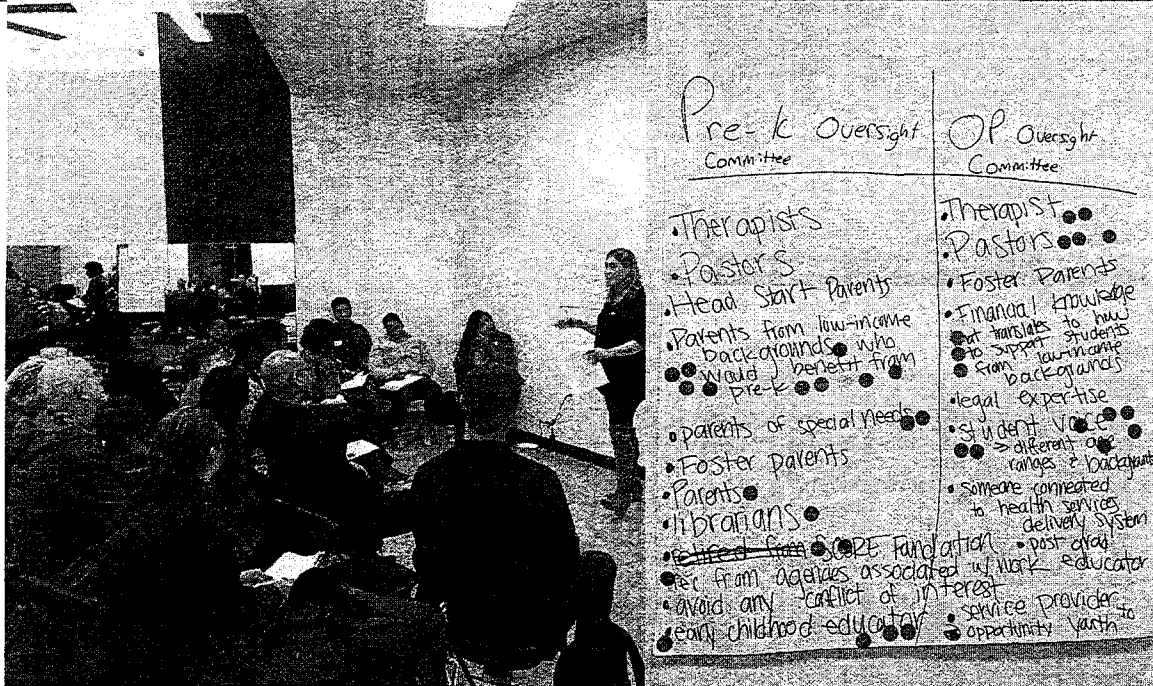 Pre-k Oversight
Committee
• Therapists
• Pastors
• Head Start Parents
• Parents from low-income
backgrounds who
would benefit from
pre-k
• parents of special needs
• Foster parents
• Parents
• librarians
• retired from SCORE Fundation
rec from agencies associated w/ work
• avoid any conflict of interest
• early childhood educator
OP Oversight
Committee
• Therapist
• Pastors
• Foster Parents
• Financial knowledge
that translates to how
to support students
from low-income
backgrounds
• legal expertise
• student voice
→ different age
ranges & backgrounds
• someone connected
to health services
delivery system
• post grad
educator
• service provider to
opportunity youth